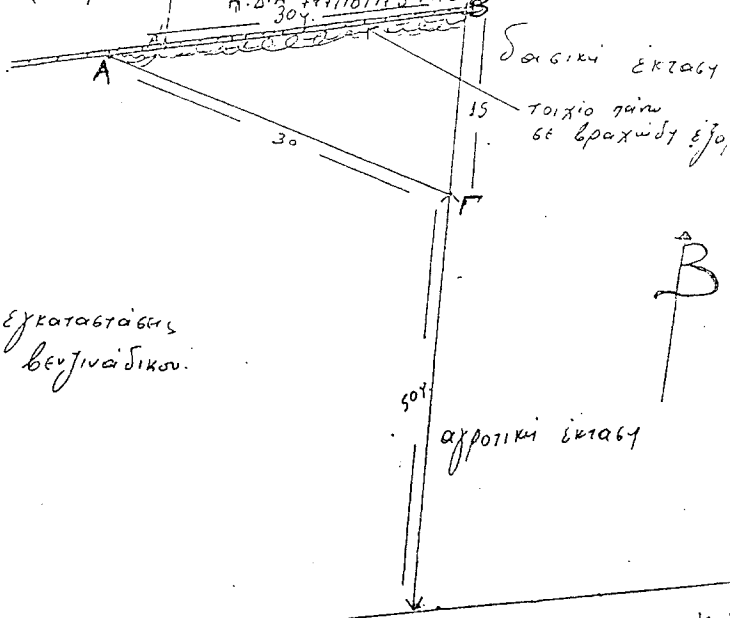 30γ.
Β
δασική έκταση
Α
15
τοιχίο πάνω
σε βραχώδη
30
Γ
Β
εγκαταστάσεις
βενζινάδικου.
50γ.
αγροτική έκταση